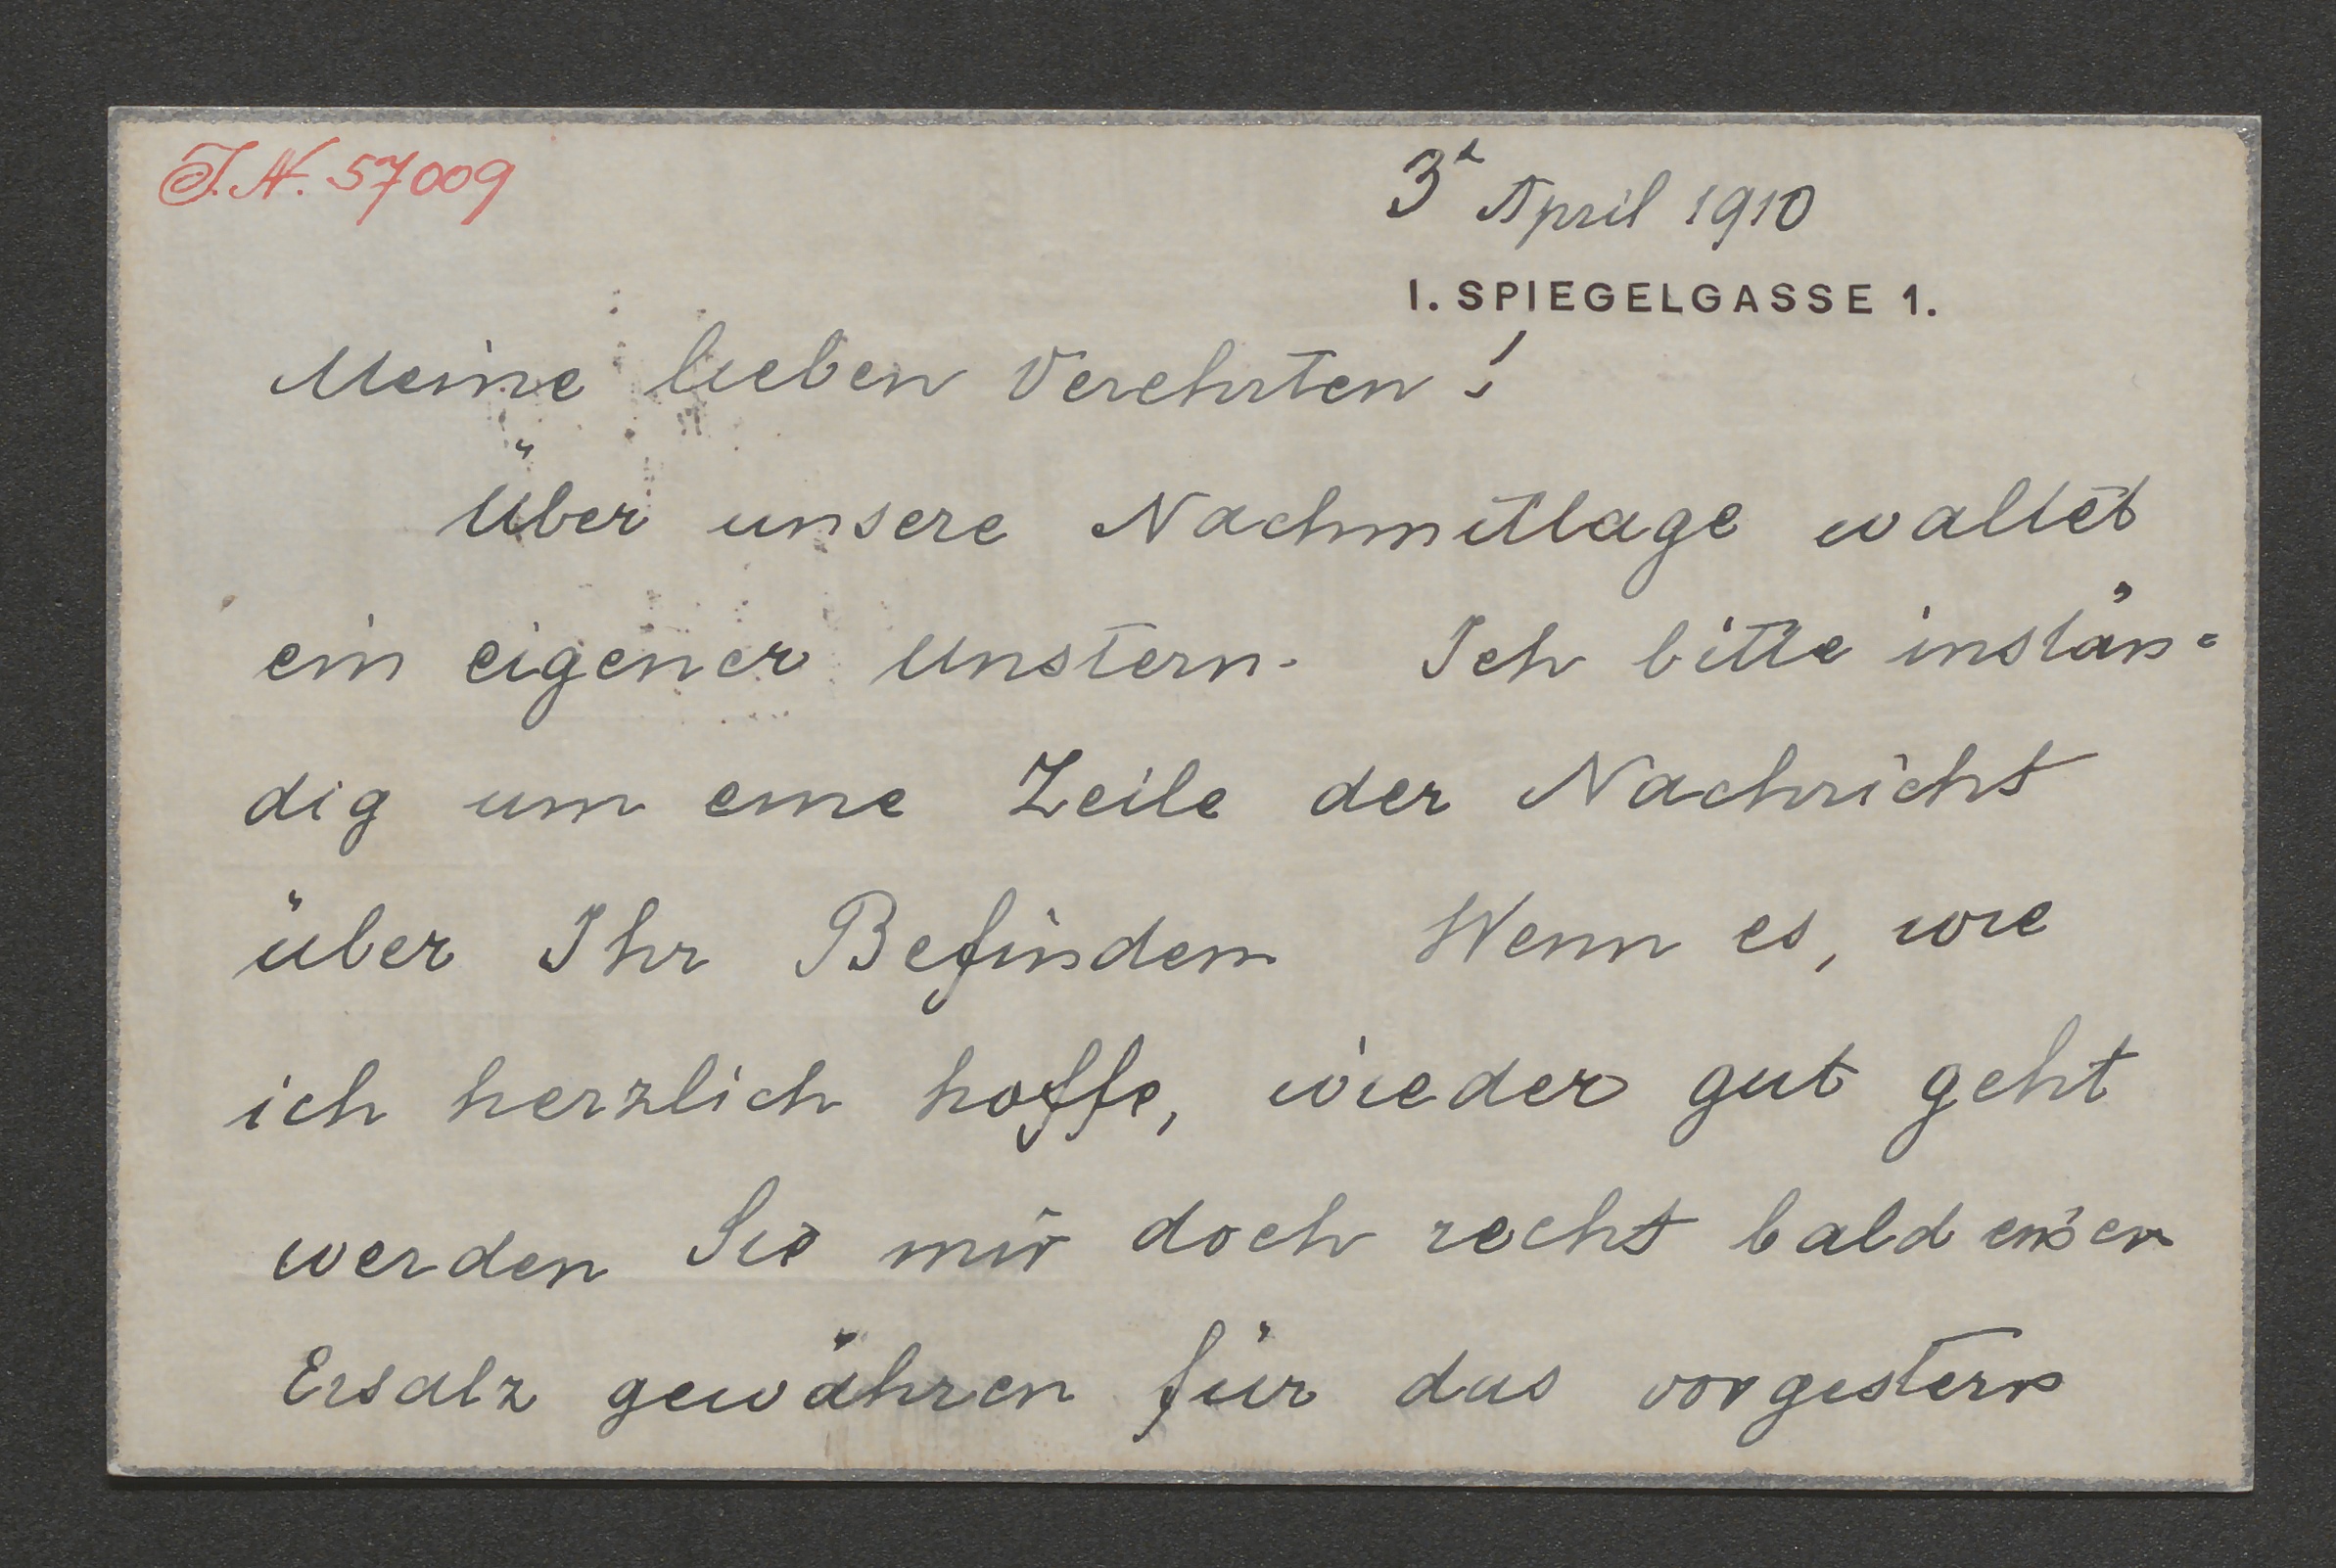 I.N. 57009
3t April 1910
I. SPIEGELGASSE 1.
Meine lieben Verehrten!
Über unsere Nachmittage waltet
ein eigener Unstern. Ich bitte instän=
dig um eine Zeile der Nachricht
über Ihr Befinden Wenn es, wie
ich herzlich hoffe, wieder gut geht
werden Sie mir doch recht bald einen
Ersatz gewähren für das vorgestern